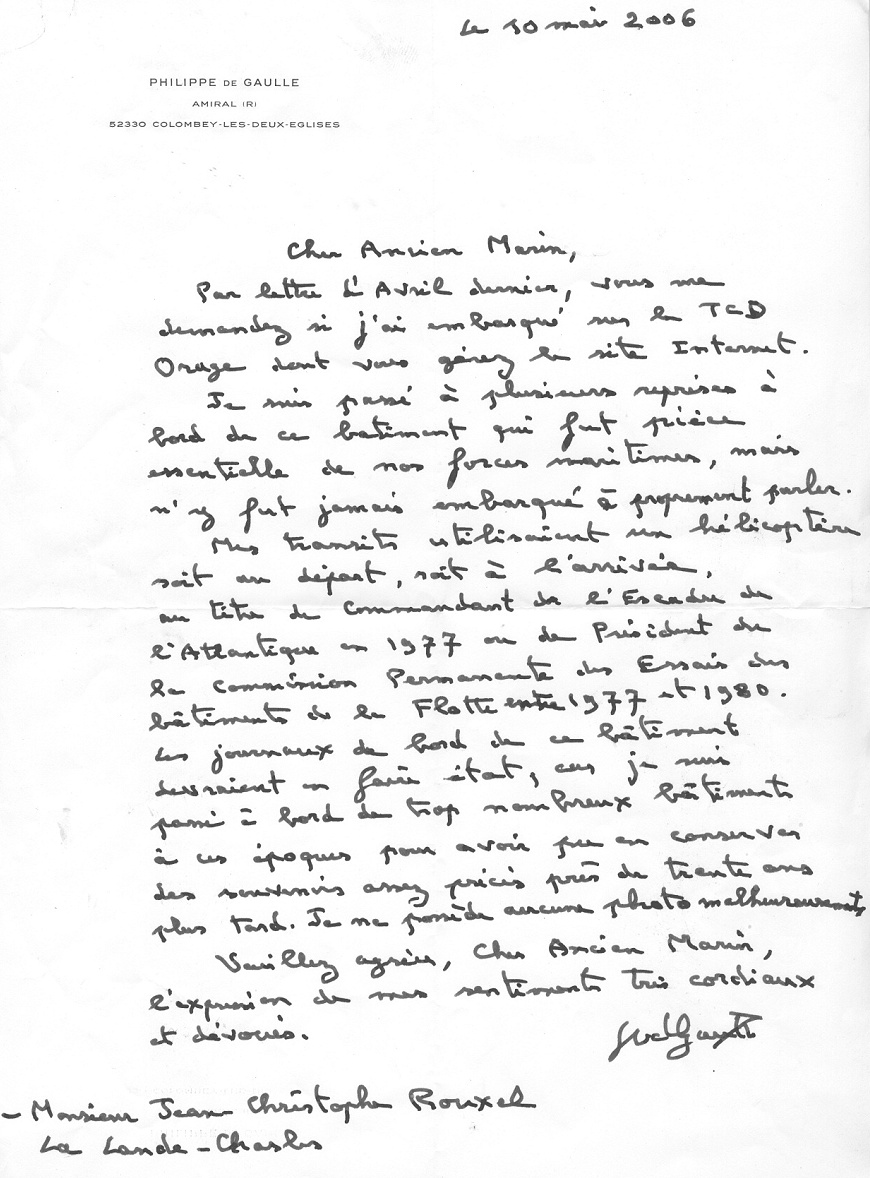 Le 10 mai 2006
PHILIPPE DE GAULLE
AMIRAL (R)
52330 COLOMBEY-LES-DEUX-EGLISES
Cher Ancien Marin,
Par lettre d'Avril dernier, vous me
demandez si j'ai embarqué sur le TCD
Orage dont vous gérez le site Internet.
Je suis passé à plusieurs reprises à
bord de ce bâtiment qui fut pièce
essentielle de nos forces maritimes, mais
n'y fut jamais embarqué à proprement parler.
Mes transits utilisaient un hélicoptère
soit au départ, soit à l'arrivée,
au titre de Commandant de l'Escadre de
l'Atlantique en 1977 ou de Président de
la Commission Permanente des Essais des
bâtiments de la Flotte entre 1977 et 1980.
Les journaux de bord de ce bâtiment
devraient en faire état, car je suis
passé à bord de trop nombreux bâtiments
à ces époques pour avoir pu en conserver
des souvenirs assez précis près de trente ans
plus tard. Je ne possède aucune photo malheureusement.
Veuillez agréer, Cher Ancien Marin,
l'expression de mes sentiments très cordiaux
et dévoués.
- Monsieur Jean Christophe Rouxel
La Lande-Chasles